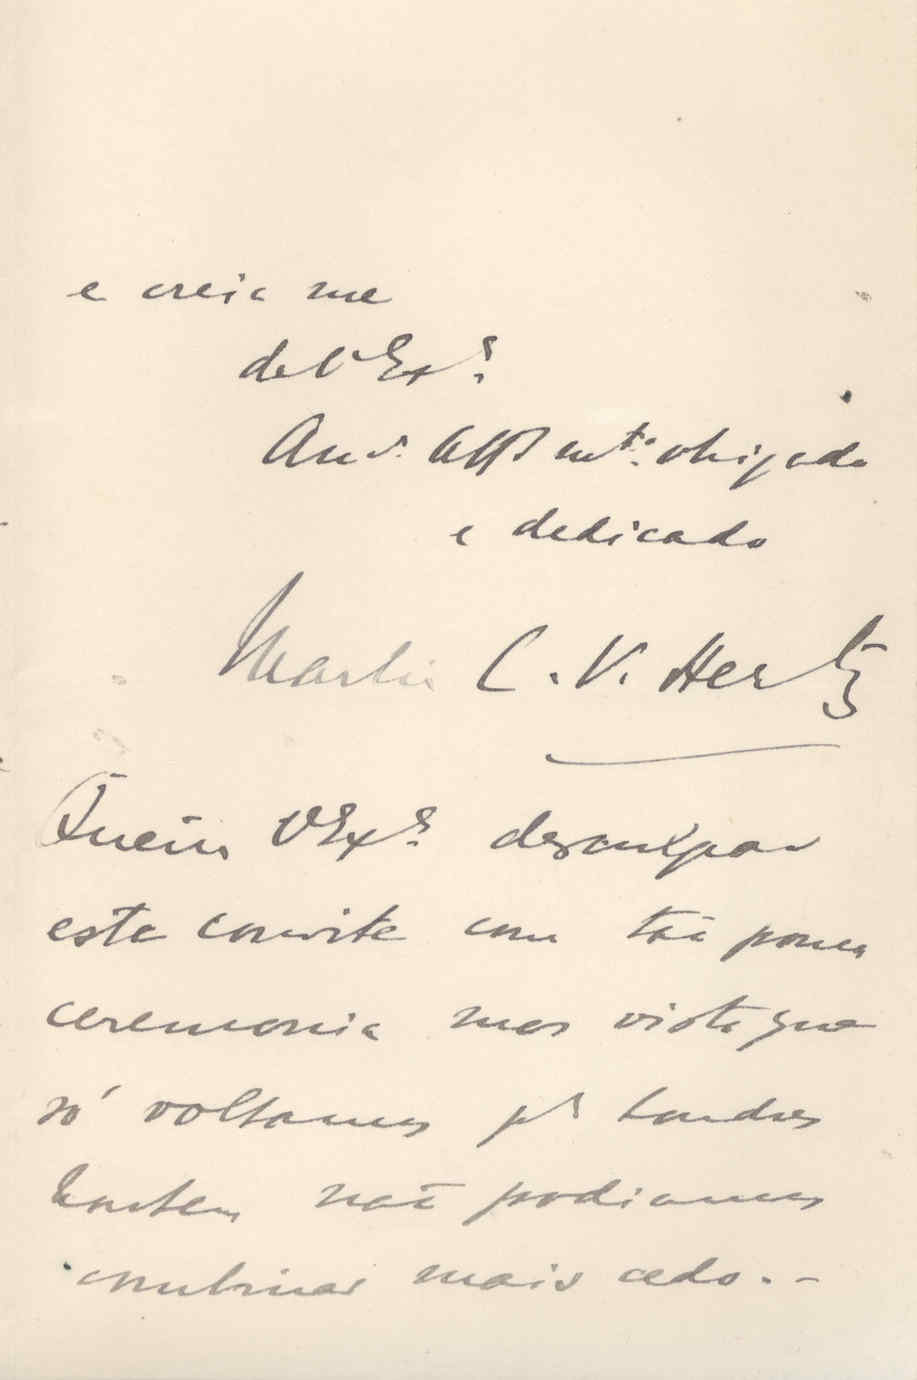 e creia me
de V Exª
Amº. Affº mtº. obrigado
e dedicado
Martin C. V. Hertz
Queira V Exª desculpar
este convite com tão pouca
ceremonia mas visto que
só voltamos pª Londres
hontem não podiamos
combinar mais cedo. -